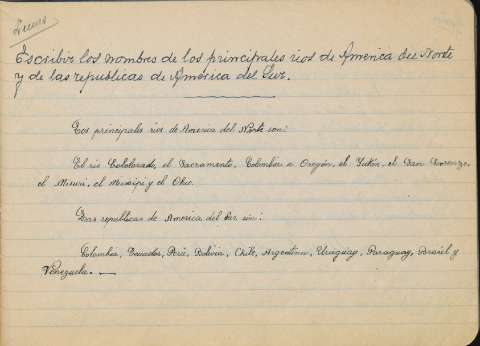 Escribir los nombres de los principales rios de America del Norte
y de las republicas de América del Sur.
Los principales rios de America del Norte son:
El rio Cololorado, el Sacramento, Colombia u Oregón, el Yukón, el San Lorenzo,
el Misuri, el Misisipi y el Ohio.
Las republicas de America del Sur son:
Colombia, Ecuador, Perú, Bolivia, Chile, Argentina, Uruguay, Paraguay, Brasil y
Venezuela.